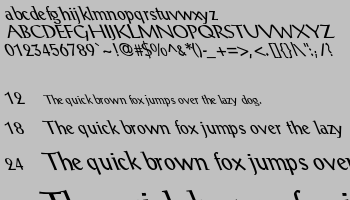 abcdefghijklmnopqrstuvwxyz
ABCDEFGHIJKLMNOPQRSTUVWXYZ
0123456789`~!@#$%^&*()-_+=>,<.[]{}/\":;/?
12 The quick brown fox jumps over the lazy dog.
18 The quick brown fox jumps over the lazy
24 The quick brown fox jumps over